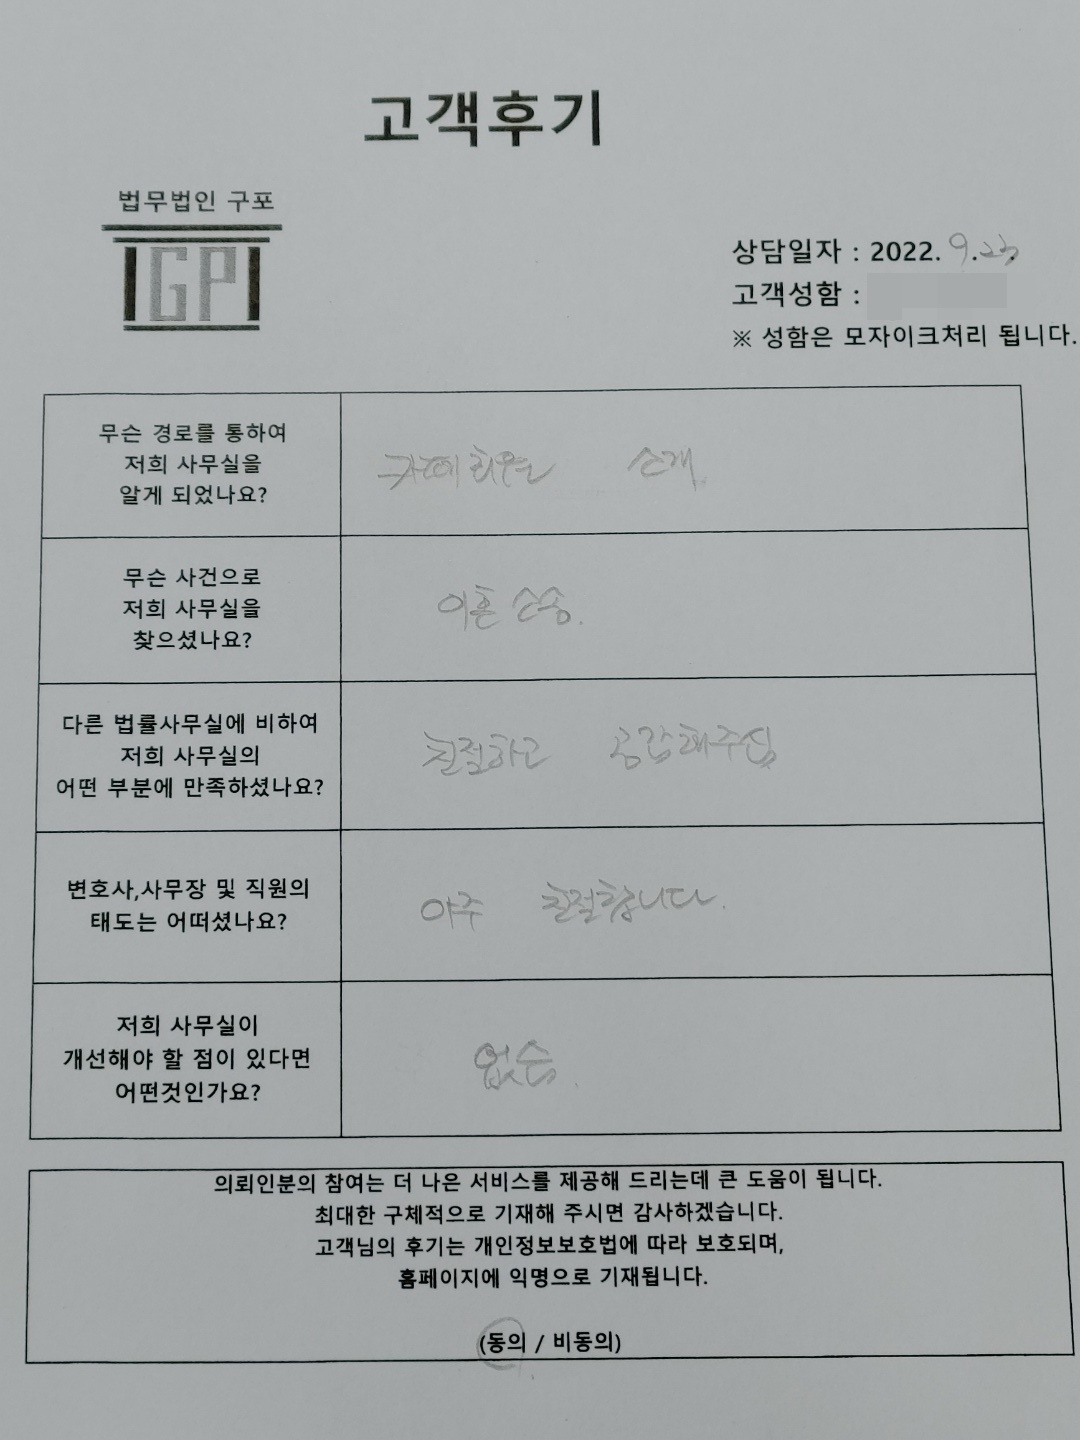 고객후기
법무법인 구포
IGPI
상담일자 : 2022. 9. 23.
고객성함 :
※ 성함은 모자이크처리 됩니다.
무슨 경로를 통하여
저희 사무실을
알게 되었나요?
카페 회원 소개.
무슨 사건으로
저희 사무실을
찾으셨나요?
이혼 소송.
다른 법률사무실에 비하여
저희 사무실의
어떤 부분에 만족하셨나요?
친절하고 공감해주심
변호사,사무장 및 직원의
태도는 어떠셨나요?
아주 친절합니다.
저희 사무실이
개선해야 할 점이 있다면
어떤것인가요?
없음.
의뢰인분의 참여는 더 나은 서비스를 제공해 드리는데 큰 도움이 됩니다.
최대한 구체적으로 기재해 주시면 감사하겠습니다.
고객님의 후기는 개인정보보호법에 따라 보호되며,
홈페이지에 익명으로 기재됩니다.
(동의 / 비동의)